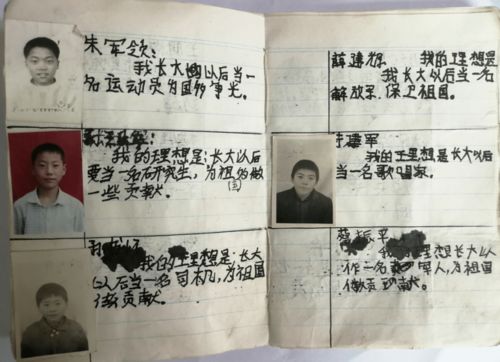 朱军领:
我长大以后当一
名运动员为国争光。
我的理想是:长大以后
要当一名研究生,为祖国做
一些贡献。
我的理想是:长大
以后当一名司机,为祖国
做贡献。
薛建锦 我的理想是
我长大以后当一
解放军.保卫祖国。
军
我的理想是长大以后
当一名歌唱家。
振平
理想长大以
作一名军人,为祖国
做贡献。